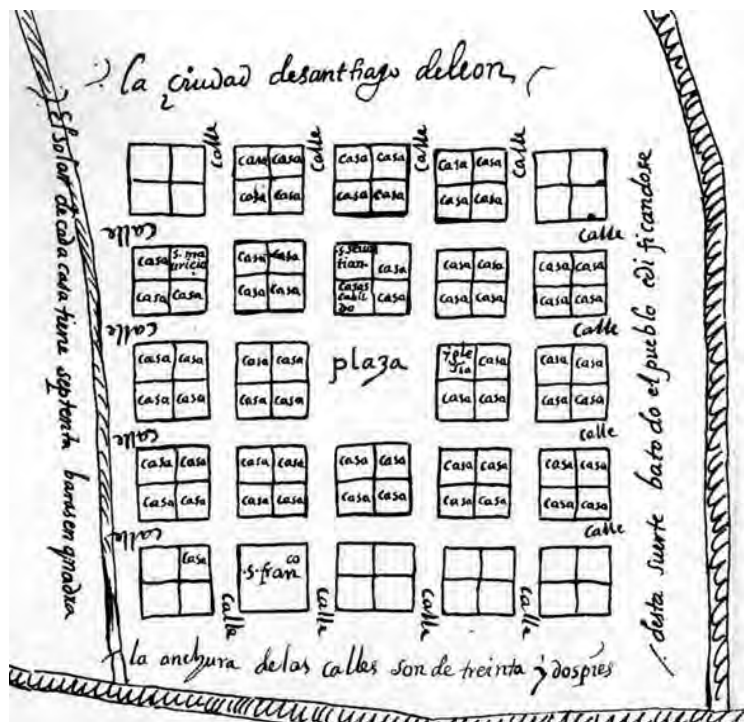 la ciudad desanthiago deleon
El solar de cada casa tiene septenta baras en quadra
desta suerte ba to do el pueblo edi ficandose
calle calle calle calle
casa casa casa casa casa casa
casa casa casa casa casa casa
calle calle
casa s. ma
uricio
casa casa
casa casa
casa casa
s. sevas
tian casa
casas
cabil
do casa
casa casa
casa casa
casa casa
casa casa
calle calle
casa casa
casa casa
casa casa
casa casa
plaza
ygle
sia casa
casa casa
casa casa
casa casa
calle calle
casa casa casa casa casa casa casa casa casa casa
casa casa casa casa casa casa casa casa casa casa
calle calle
casa
.s. franco
calle calle calle calle
la anchura delas calles son de treinta y dospies